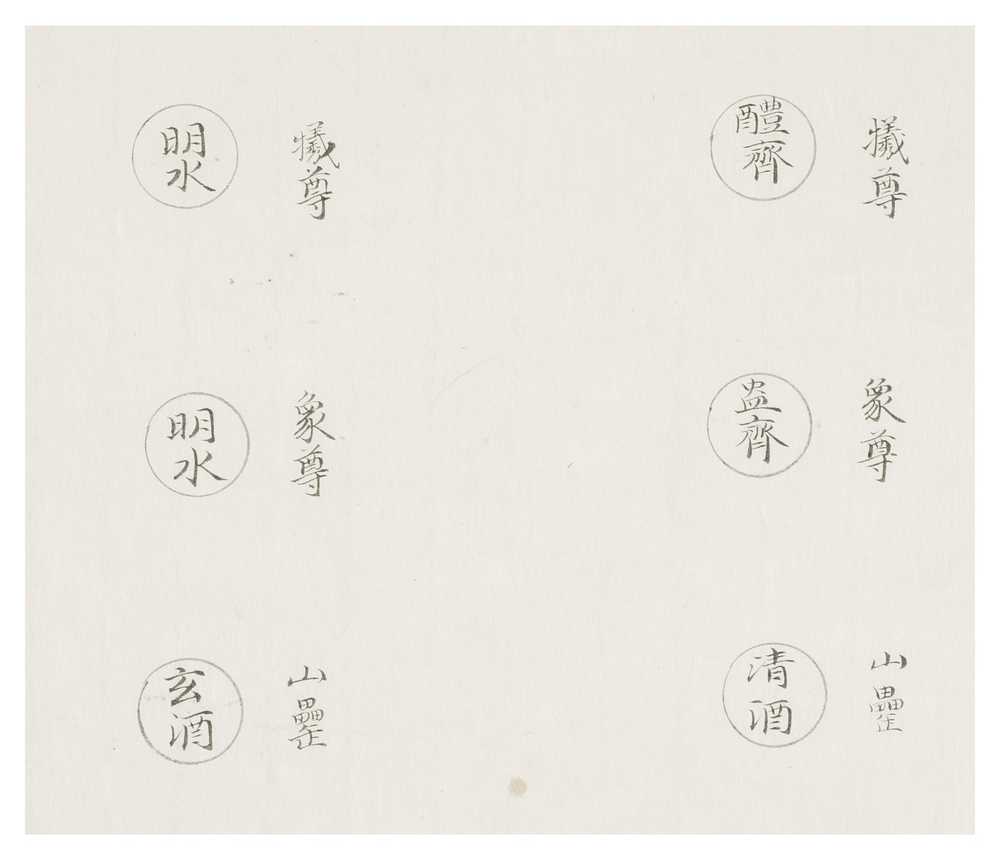 犧尊
醴齊
犧尊
明水
象尊
盎齊
象尊
明水
山罍
清酒
山罍
玄酒